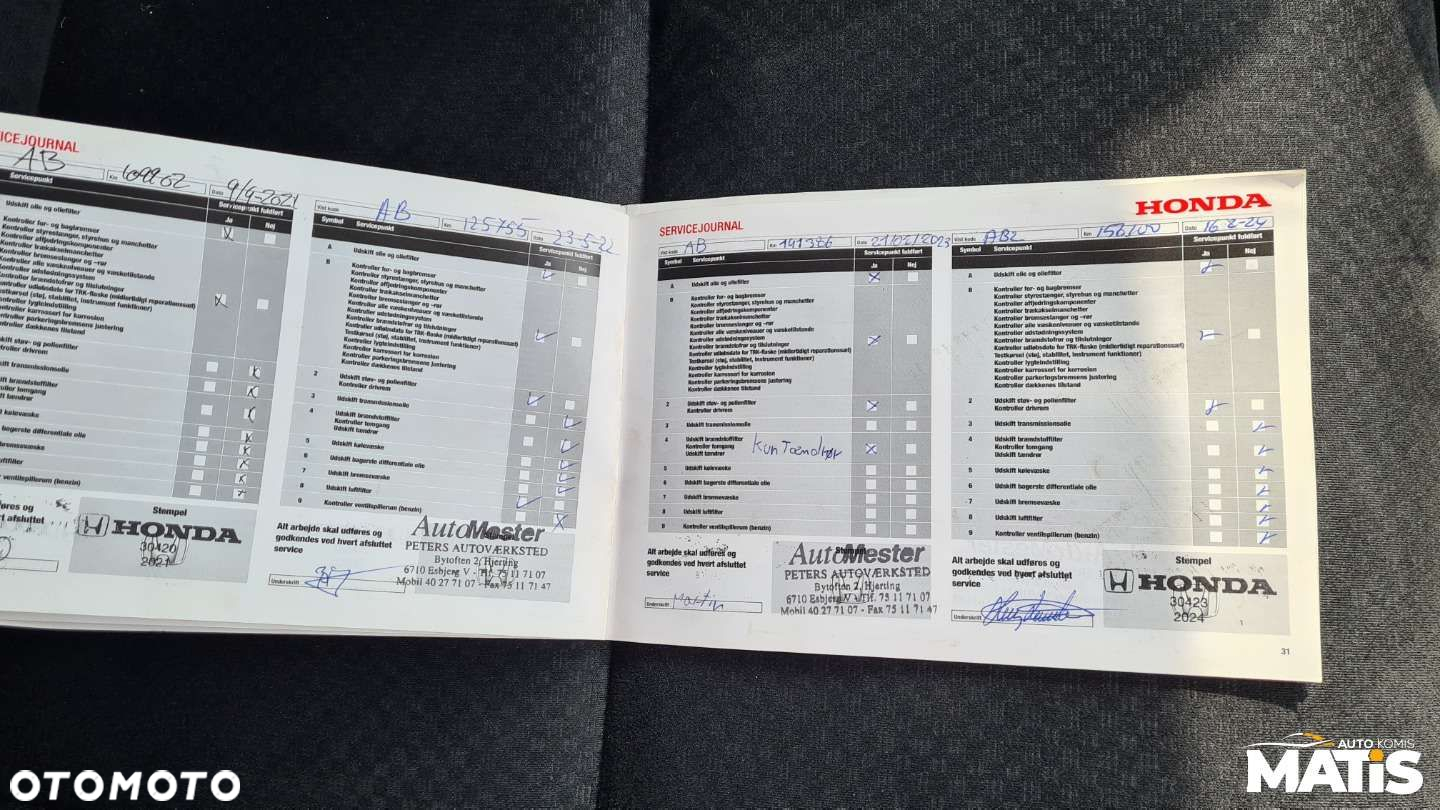 SERVICEJOURNAL
AB
Km
Dato 9/4-2021
Servicepunkt
Servicepunkt fuldført
Ja Nej
Udskift olie og oliefilter
Kontroller for- og bagbremser
Kontroller styrestænger, styrehus og manchetter
Kontroller affjedringskomponenter
Kontroller trækakselmanchetter
Kontroller bremseslanger og -rør
Kontroller alle væskeniveauer og væsketilstande
Kontroller udstødningssystem
Kontroller brændstofrør og tilslutninger
Kontroller udløbsdato for TRK-flaske (midlertidigt reparationssæt)
Testkørsel (støj, stabilitet, instrument funktioner)
Kontroller lygteindstilling
Kontroller karrosseri for korrosion
Kontroller parkeringsbremsens justering
Kontroller dækkenes tilstand
Udskift støv- og pollenfilter
Kontroller drivrem
Udskift transmissionsolie
Udskift brændstoffilter
Kontroller tomgang
Udskift tændrør
Udskift kølevæske
Udskift bagerste differentiale olie
Udskift bremsevæske
Udskift luftfilter
Kontroller ventilspillerum (benzin)
Stempel
HONDA
30420
2021
Vist kode AB
Km 125755
Dato 23-5-22
Symbol Servicepunkt
Servicepunkt fuldført
Ja Nej
A Udskift olie og oliefilter
B Kontroller for- og bagbremser
Kontroller styrestænger, styrehus og manchetter
Kontroller affjedringskomponenter
Kontroller trækakselmanchetter
Kontroller bremseslanger og -rør
Kontroller alle væskeniveauer og væsketilstande
Kontroller udstødningssystem
Kontroller brændstofrør og tilslutninger
Kontroller udløbsdato for TRK-flaske (midlertidigt reparationssæt)
Testkørsel (støj, stabilitet, instrument funktioner)
Kontroller lygteindstilling
Kontroller karrosseri for korrosion
Kontroller parkeringsbremsens justering
Kontroller dækkenes tilstand
2 Udskift støv- og pollenfilter
Kontroller drivrem
3 Udskift transmissionsolie
4 Udskift brændstoffilter
Kontroller tomgang
Udskift tændrør
5 Udskift kølevæske
6 Udskift bagerste differentiale olie
7 Udskift bremsevæske
8 Udskift luftfilter
9 Kontroller ventilspillerum (benzin)
Alt arbejde skal udføres og
godkendes ved hvert afsluttet
service
Underskrift
AutoMester
PETERS AUTOVÆRKSTED
Bytoften 2, Hjerting
6710 Esbjerg V - Tlf. 75 11 71 07
Mobil 40 27 71 07 - Fax 75 11 71 47
SERVICEJOURNAL
HONDA
Vist kode AB
Km 141386
Dato 21/02/2023
Symbol Servicepunkt
Servicepunkt fuldført
Ja Nej
A Udskift olie og oliefilter
B Kontroller for- og bagbremser
Kontroller styrestænger, styrehus og manchetter
Kontroller affjedringskomponenter
Kontroller trækakselmanchetter
Kontroller bremseslanger og -rør
Kontroller alle væskeniveauer og væsketilstande
Kontroller udstødningssystem
Kontroller brændstofrør og tilslutninger
Kontroller udløbsdato for TRK-flaske (midlertidigt reparationssæt)
Testkørsel (støj, stabilitet, instrument funktioner)
Kontroller lygteindstilling
Kontroller karrosseri for korrosion
Kontroller parkeringsbremsens justering
Kontroller dækkenes tilstand
2 Udskift støv- og pollenfilter
Kontroller drivrem
3 Udskift transmissionsolie
4 Udskift brændstoffilter
Kontroller tomgang
Udskift tændrør
Kun Tændrør
5 Udskift kølevæske
6 Udskift bagerste differentiale olie
7 Udskift bremsevæske
8 Udskift luftfilter
9 Kontroller ventilspillerum (benzin)
Alt arbejde skal udføres og
godkendes ved hvert afsluttet
service
Underskrift Martin
AutoMester
PETERS AUTOVÆRKSTED
Bytoften 2, Hjerting
6710 Esbjerg V - Tlf. 75 11 71 07
Mobil 40 27 71 07 - Fax 75 11 71 47
Vist kode AB2
Km 156100
Dato 16-2-24
Symbol Servicepunkt
Servicepunkt fuldført
Ja Nej
A Udskift olie og oliefilter
B Kontroller for- og bagbremser
Kontroller styrestænger, styrehus og manchetter
Kontroller affjedringskomponenter
Kontroller trækakselmanchetter
Kontroller bremseslanger og -rør
Kontroller alle væskeniveauer og væsketilstande
Kontroller udstødningssystem
Kontroller brændstofrør og tilslutninger
Kontroller udløbsdato for TRK-flaske (midlertidigt reparationssæt)
Testkørsel (støj, stabilitet, instrument funktioner)
Kontroller lygteindstilling
Kontroller karrosseri for korrosion
Kontroller parkeringsbremsens justering
Kontroller dækkenes tilstand
2 Udskift støv- og pollenfilter
Kontroller drivrem
3 Udskift transmissionsolie
4 Udskift brændstoffilter
Kontroller tomgang
Udskift tændrør
5 Udskift kølevæske
6 Udskift bagerste differentiale olie
7 Udskift bremsevæske
8 Udskift luftfilter
9 Kontroller ventilspillerum (benzin)
Alt arbejde skal udføres og
godkendes ved hvert afsluttet
service
Underskrift
Stempel
HONDA
30423
2024
31
OTOMOTO
AUTO KOMIS
MATiS